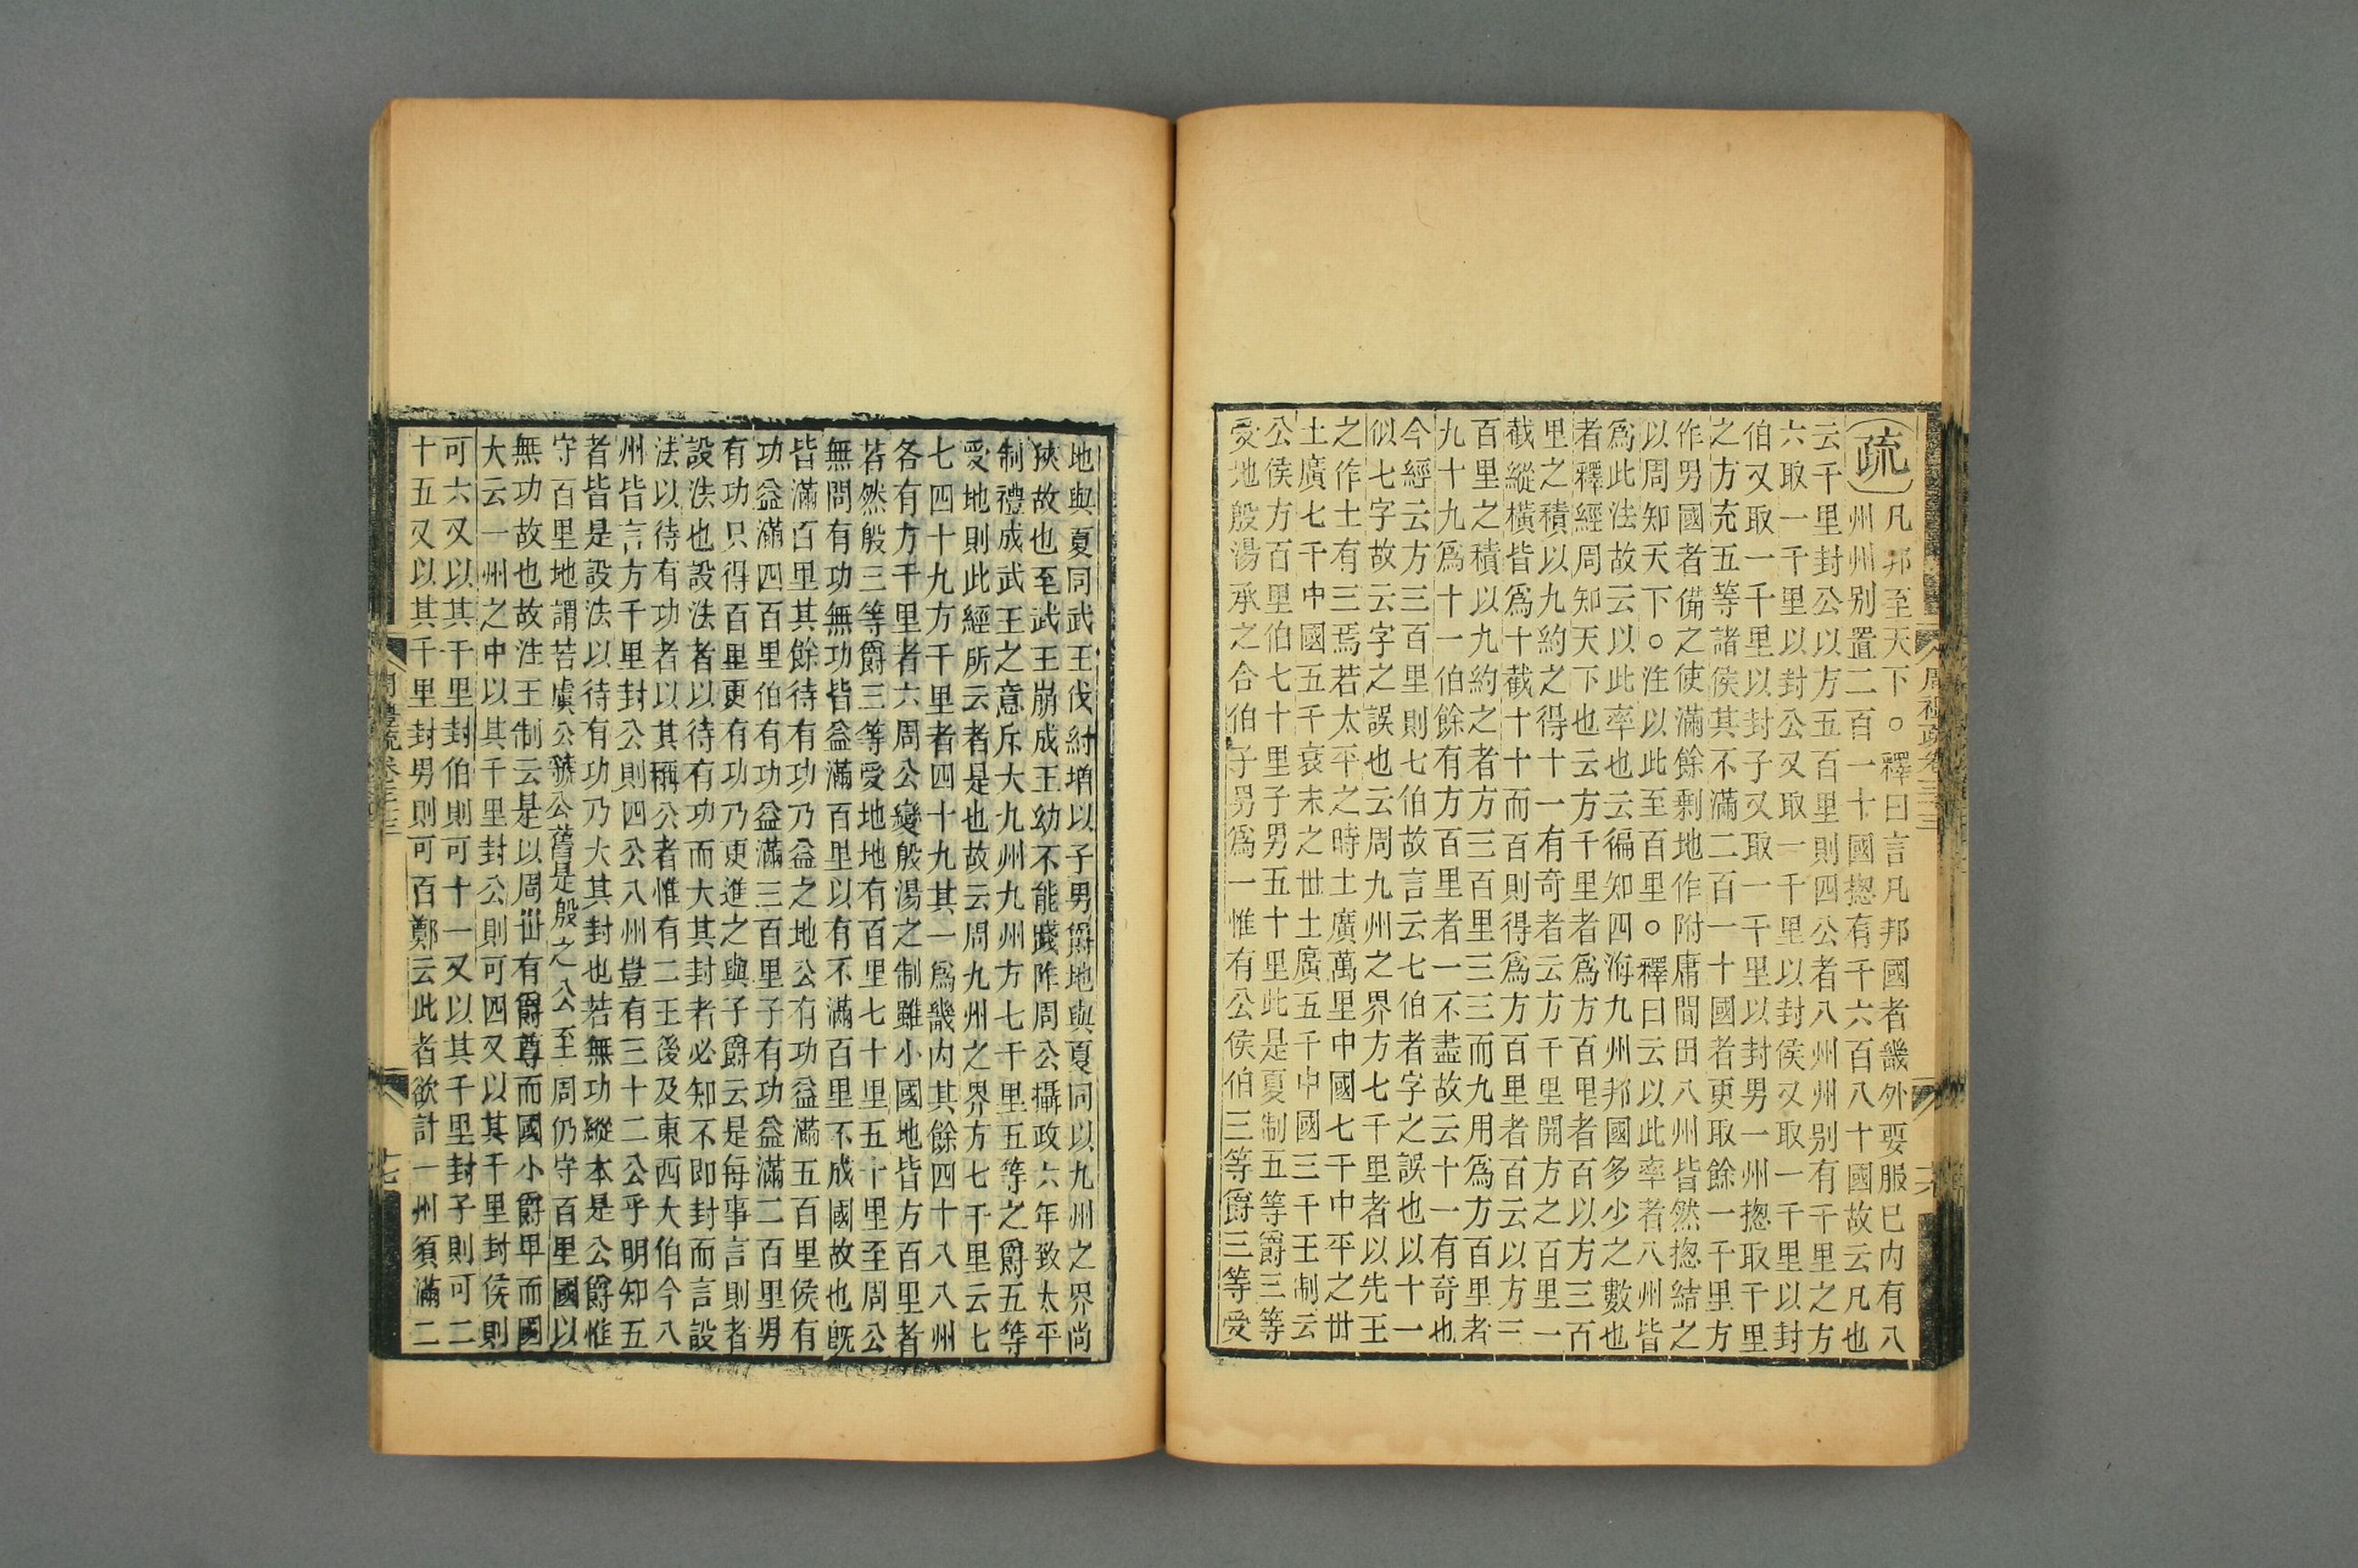 周禮疏卷三十三
十六
疏凡邦至天下○釋曰言凡邦國者畿外要服已内有八
州州别置二百一十國揔有千六百八十國故云凡也
云千里封公以方五百里則四公者八州州别有千里之方
六取一千里以封公又取一千里以封侯又取一千里以封
伯又取一千里以封子又取一千里以封男一州揔取千里
之方充五等諸侯其不滿二百一十國者更取餘一千里方
作男國者備之使滿餘剩地作附庸間田八州皆然揔結之
以周知天下○注以此至百里○釋曰云以此率者八州皆
爲此法故云以此率也云徧知四海九州邦國多少之數也
者釋經周知天下也云方千里者爲方百里者百以方三百
里之積以九約之得十一有奇者云方千里開方之百里一
截縱橫皆爲十截十十而百則得爲方百里者百云以方三
百里之積以九約之者方三百里三三而九用爲方百里者
九十九爲十一伯餘有方百里者一不盡故云十一有奇也
今經云方三百里則七伯故言云七伯者字之誤也以十一
似七字故云字之誤也云周九州之界方七千里者以先王
之作土有三焉若太平之時土廣萬里中國七千中平之世
土廣七千中國五千衰末之世土廣五千中國三千王制云
公侯方百里伯七十里子男五十里此是夏制五等爵三等
受地殷湯承之合伯子男爲一惟有公侯伯三等爵三等受
地與夏同武王伐紂增以子男爵地與夏同以九州之界尚
狹故也至武王崩成王幼不能踐阼周公攝政六年致太平
制禮成武王之意斥大九州九州方七千里五等之爵五等
受地則此經所云者是也故云周九州之界方七千里云七
七四十九方千里者四十九其一爲畿内其餘四十八八州
各有方千里者六周公變殷湯之制雖小國地皆方百里者
若然殷三等爵三等受地地有百里七十里五十里至周公
無問有功無功皆益滿百里以有不滿百里不成國故也既
皆滿百里其餘待有功乃益之地公有功益滿五百里侯有
功益滿四百里伯有功益滿三百里子有功益滿二百里男
有功只得百里更有功乃更進之與子爵云是每事言則者
設法也設法者以待有功而大其封者必知不即封而言設
法以待有功者以其稱公者惟有二王後及東西大伯今八
州皆言方千里封公則四公八州豈有三十二公乎明知五
者皆是設法以待有功乃大其封也若無功縱本是公爵惟
守百里地謂若虞公虢公舊是殷之公至周仍守百里國以
無功故也故注王制云是以周世有爵尊而國小爵卑而國
大云一州之中以其千里封公則可四又以其千里封侯則
可六又以其千里封伯則可十一又以其千里封子則可二
十五又以其千里封男則可百鄭云此者欲計一州須滿二
周禮疏卷三十三
十七